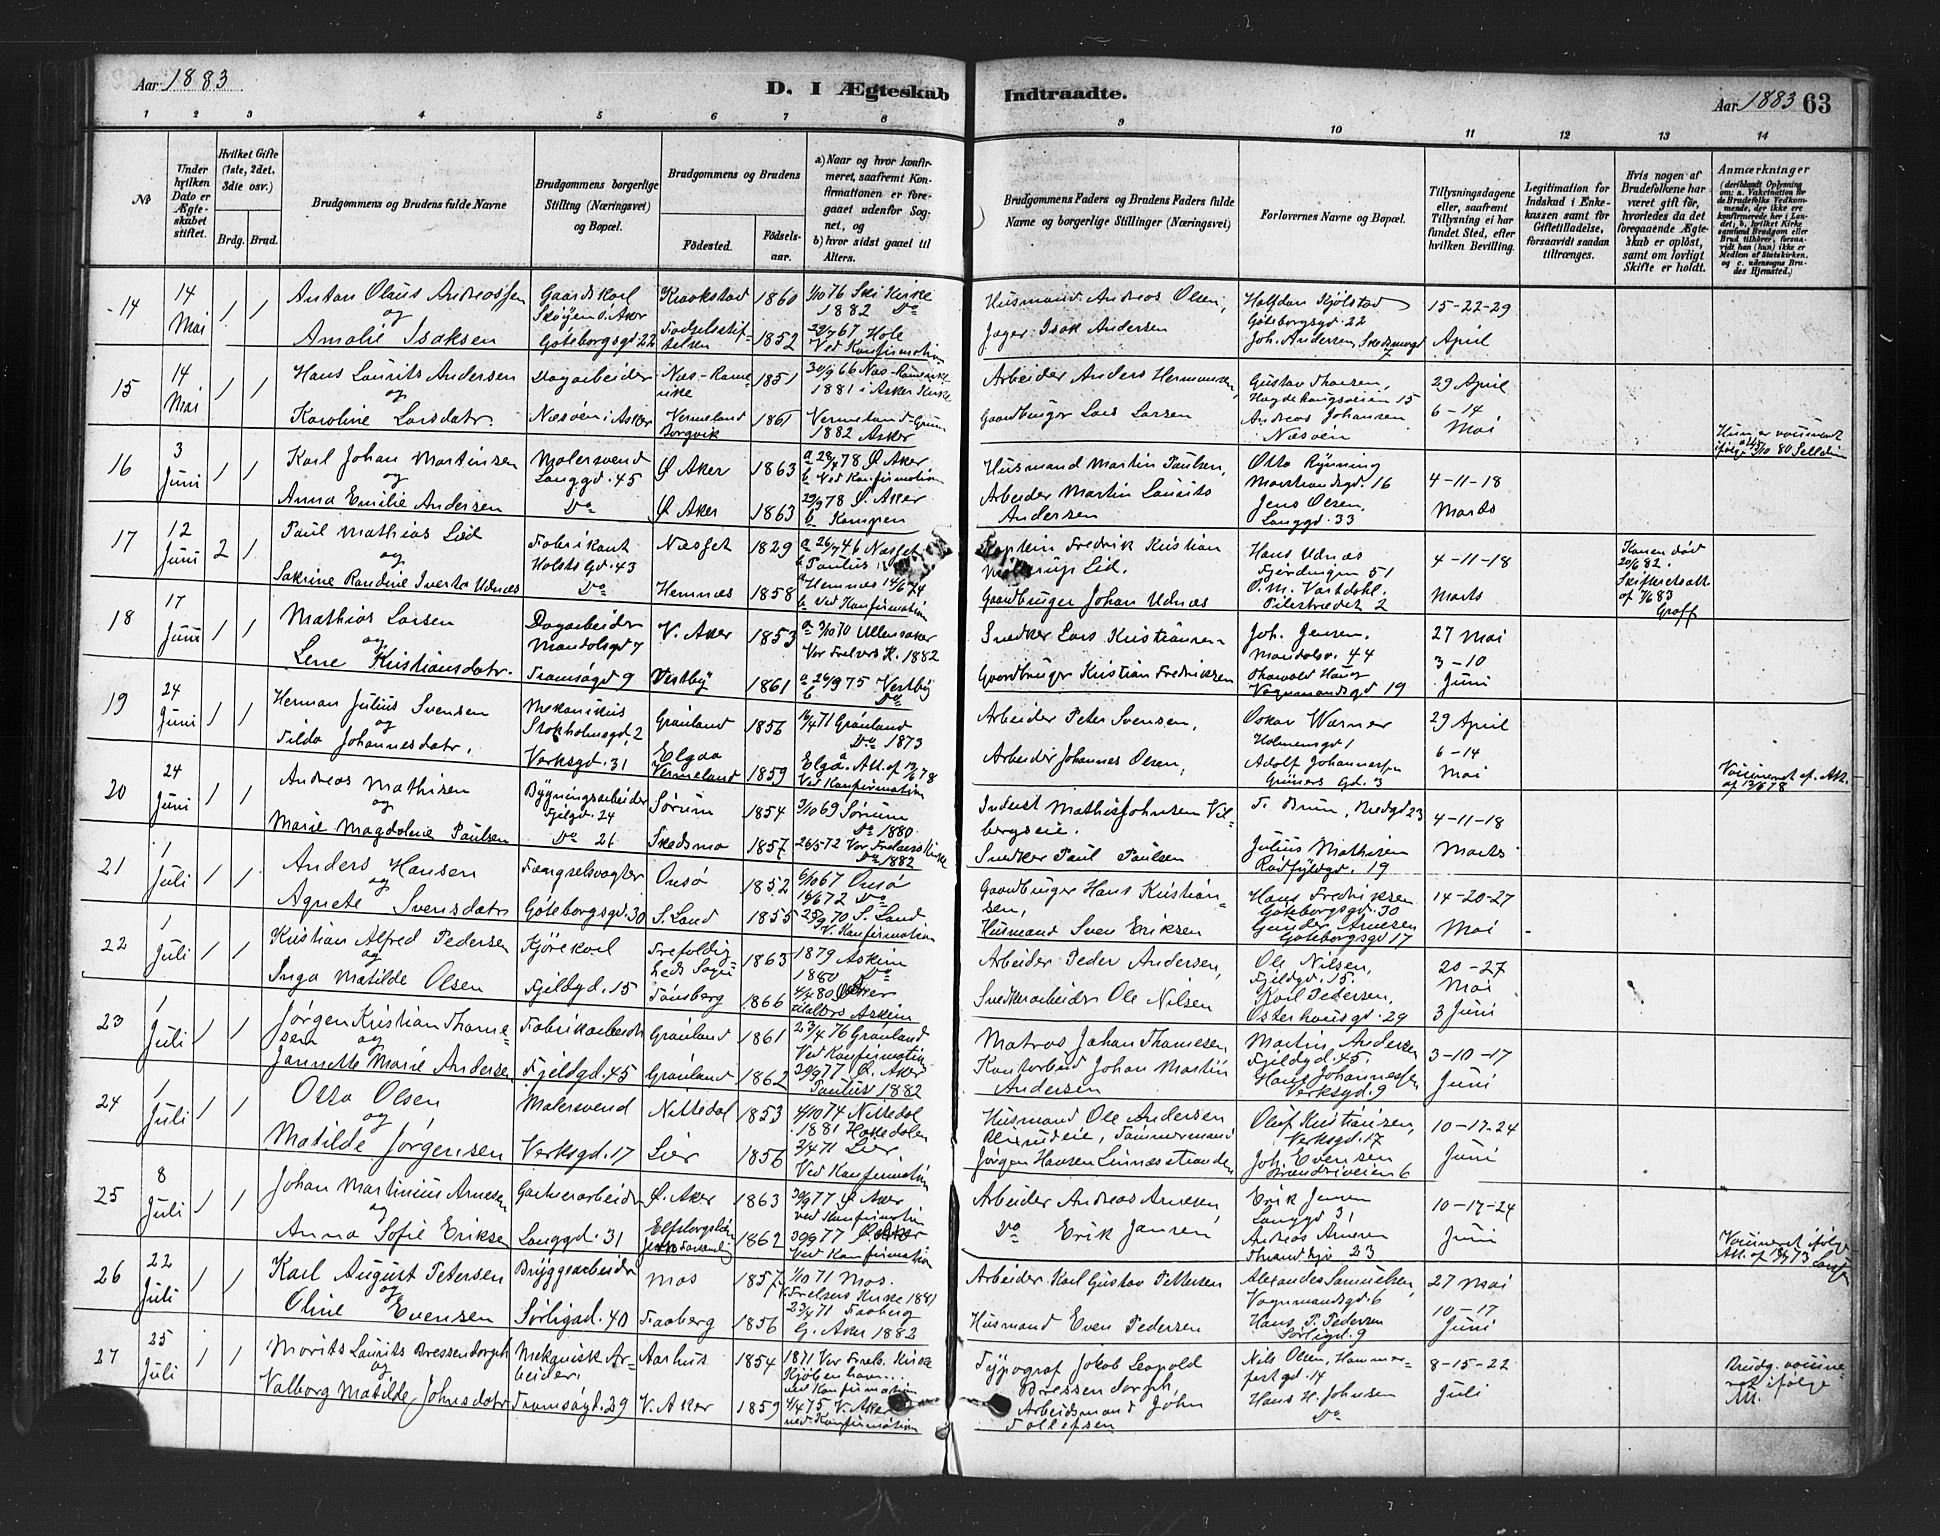 Aar 1883
D. I Ægteskab
Indtraadte.
Aar 1883 63
1 2 3 4 5 6 7 8 9 10 11 12 13 14
№
Under hvilken Dato er Ægteskabet stiftet.
Hvilket Gifte (1ste, 2det, 3die osv.)
Brdg. Brud.
Brudgommens og Brudens fulde Navne
Brudgommens borgerlige Stilling (Næringsvei) og Bopæl.
Brudgommens og Brudens
Fødested.
Fødselsaar.
a) Naar og hvor konfirmeret, saafremt Konfirmationen er foregaaet udenfor Sognet, og
b) hvor sidst gaaet til Alters.
Brudgommens Faders og Brudens Faders fulde Navne og borgerlige Stillinger (Næringsvei)
Forlovernes Navne og Bopæl.
Tillysningsdagene eller, saafremt Tillysning ei har fundet Sted, efter hvilken Bevilling.
Legitimation for Indskud i Enkekassen samt for Giftetilladelse, forsaavidt saadan tiltrænges.
Hvis nogen af Brudefolkene har været gift før, hvorledes da det foregaaende Ægteskab er opløst, samt om lovligt Skifte er holdt.
Anmærkninger
14
14 Mai
1 1
Anton Olaus Andreassen
og
Amalie Isaksen
Gaardskarl
Skøyen V. Aker
Göteborgsgd. 22
Kraakstad
Fødselsstiftelsen
1860
1852
1/10 76 Ski Kirke
1882 Do
Hole
Ved Konfirmation
Husmand Andreas Olsen,
Jæger Isak Andersen
Halfdan Kjølstad
Göteborgsgd. 22
Joh. Andersen,
15-22-29
April
15
14 Mai
1 1
Hans Laurits Andersen
og
Karoline Larsdatr.
Dagarbeider
Næsøen i Asker
Næs-Romerike
Vermeland
Borgvik
1851
1861
30/9 66 Næs-Romerike
1881 i Asker Kirke
1882 Asker
Arbeider Anders Hermansen,
Gaardbruger Lars Larsen
Gustav Thoresen,
Andreas Johansen
Næsøen
29 April
6-14
Mai
16
3 Juni
1 1
Karl Johan Martinsen
og
Anna Emilie Andersen
Malersvend
Langgd. 45
Do
Ø Aker
Ø Aker
1863
1863
Ø Aker
b Ved Konfirmation
29/9 78 Ø. Aker
b Kampen
Husmand Martin Paulsen,
Arbeider Martin Laurits
Andersen
Otto Rynning
Marstrandsgd. 16
Jens Olsen,
Langgd. 33
4-11-18
Marts
17
12 Juni
2 1
Paul Mathias Lied
og
Sakrine Randine Iverta Udnæs
Fabrikant
Holsts Gd. 43
Do
Næsset
Hemnæs
1829
1858
Næsset
b Paulus
Hemnes
b Ved Konfirmation
Kaptein Fredrik Kristian
Lied.
Gaardbruger Johan Udnæs
Hans Udnæs
Fjerdingen 51
Pilestrædet 2
4-11-18
Marts
Konen død
20/6 82.
Skifteretsatt.
af
Graff
18
17 Juni
1 1
Mathias Larsen
og
Lene Kristiansdatr.
Dagarbeider
Mandalsgd 7
Tromsøgd 9
V. Aker
Vestby
1853
1861
a 2/10 70 Ullensaker
Vor Frelsers K. 1882
a 26/9 75 Vestby
b Do
Snedker Lars Kristiansen
Gaardbruger Kristian Fredriksen
Joh. Jensen,
44
Thorvald Haug
Vognmandsgd 19
27 Mai
3-10
Juni
19
24 Juni
1 1
Herman Julius Svensen
og
Tilda Johannesdatr.
Mekanikus
Stokholmsgd. 2
Verksgd. 31
Grønland
Elgaa
Vermeland
1856
1859
71 Grønland
Do 1873
Ved Konfirmation
Arbeider Peter Svensen,
Arbeider Johannes Olsen,
Oskar Werner
Holmensgd 1
Adolf Johannessen
Grüners Gd. 3
29 April
6-14
Mai
20
24 Juni
1 1
Andreas Mathisen
og
Marie Magdalene Paulsen
Bygningsarbeider
Fjelgd. 24
Do 26
Sørum
Skedsmo
1854
1857
3/10 69 Sørum
Do 1880
26/5 72 Vor Frelsers Kirke
Do 1882
Inderst Mathis Johnsen Vilbergseie.
Snedker Paul Paulsen
F. Brun, Bredgd 23
Julius Mathisen
Rødfyldgd. 19
4-11-18
Marts
21
1 Juli
1 1
Anders Hansen
og
Agnete Svensdatr
Fængselsvogter
Göteborgsgd. 30
Onsø
S. Land
1852
1855
6/10 67 Onsø
Do
25/9 70 S. Land
V. Konfirmation
Gaardbruger Hans Kristiansen,
Husmand Sven Eriksen
Hans Fredriksen
Göteborgsgd. 30
Gunder Arnesen
Göteborgsgd 17
14-20-27
Mai
22
1 Juli
1 1
Kristian Alfred Pedersen
og
Inga Matilde Olsen
Kjørekarl
Fjeldgd. 15
Trefoldigheds Sogn
Tønsberg
1863
1866
1879 Askim
1880 Do
Askim
Arbeider Peder Andersen,
Snedkerarbeider Ole Nilsen
Ole Nilsen,
Fjeldgd. 15.
Karl Pedersen,
Osterhausgd. 29
20-27
Mai
3 Juni
23
1 Juli
1 1
Jørgen Kristian Thomesen
og
Jannette Marie Andersen
Fabrikarbeider
Fjeldgd. 45
Grønland
Grønland
1861
1862
23/4 76 Grønland
Ved Konfirmation
30/9 77 Ø. Aker
Paulus 1882
Matros Johan Thomesen,
Kontorbud Johan Martin
Andersen
Martin Andersen
Fjeldgd. 45.
Hans Johannessen
Verksgd. 9
3-10-17
Juni
24
1 Juli
1 1
Otto Olsen
og
Matilde Jørgensen
Malersvend
Verksgd. 17
Nittedal
Lier
1853
1856
4/10 74 Nittedal
1881 Hakedalen
2/4 71 Lier
Ved Konfirmation
Husmand Ole Andersen
Tømmermand
Jørgen Hansen Linnesstranden
Olaf Kristiansen,
Verksgd. 17
Joh. Evensen
6
10-17-24
Juni
25
8 Juli
1 1
Johan Martinius Arnesen
og
Anna Sofie Eriksen
Gartnerarbeider
Langgd. 31
Ø. Aker
1863
1862
30/9 77 Ø Aker
ved Konfirmation
30/9 77 Ø. Aker
Ved Konfirmation
Arbeider Andreas Arnesen
Do Erik Jansen
Erik Jansen
Langgd 31
Andreas Arnesen
23
10-17-24
Juni
26
22 Juli
1 1
Karl August Petersen
og
Oline Evensen
Bryggearbeider
Sørligad. 40
Mos
Faaberg
1857
1856
1/10 71 Mos.
V. Frelsers Kirke 1881
23/4 71 Faaberg
G. Aker 1882
Arbeider Karl Gustav Pettersen
Husmand Even Pedersen
Alexander Samuelsen,
Vognmandsgd. 6
Hans P. Pedersen
Sørligd. 9
27 Mai
10-17
Juni
27
25 Juli
1 1
Morits Laurits Bressendorph
og
Valborg Matilde Johnsdatr
Mekanisk Arbeider,
Tromsøgd. 29
Aarhus
V. Aker
1854
1859
1871 Vor Frels. Kirke
Kjøbenhavn
ved Konfirmation
4/4 75 V. Aker
ved Konfirmation
Typograf Jakob Leopold
Bressendorph,
Arbeidsmand John
Tollefsen
Nils Olsen, Hammerfestgd. 14
Hans H. Johnsen
Do
8-15-22
Juli
Brudg. vaccineret ifølge
Att.